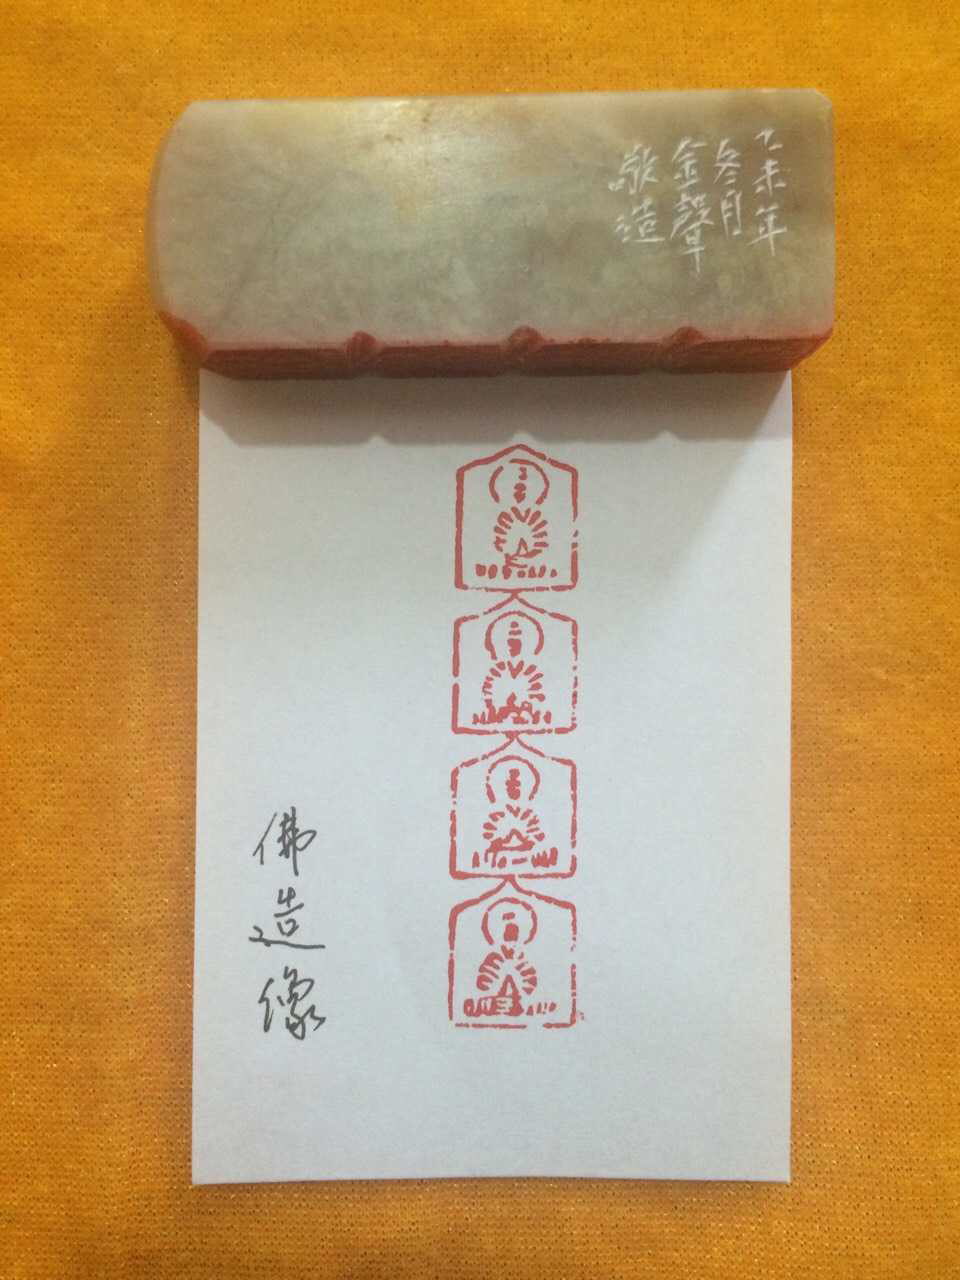 乙未年
冬月
金聲
敬造
佛造像